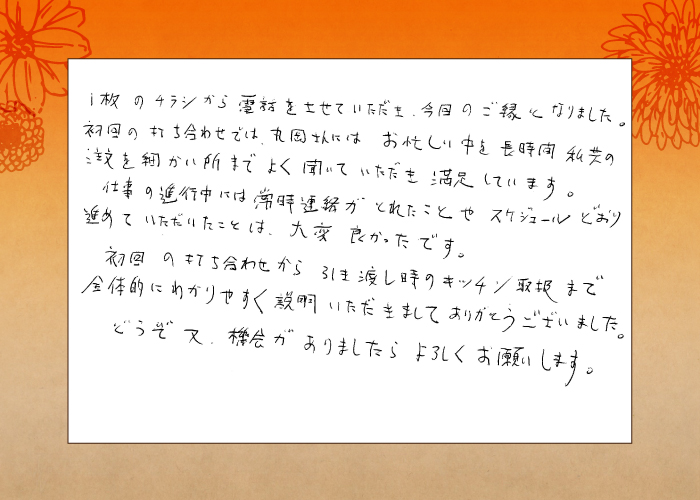 1枚のチラシから電話をさせていただき、今回のご縁となりました。
初回の打ち合わせでは、丸岡さんには お忙しい中を長時間 私共の
注文を細かい所までよく聞いていただき満足しています。
仕事の進行中には常時連絡がとれたことやスケジュールどおり
進めていただいたことは、大変良かったです。
初回の打ち合わせから引き渡し時のキッチン取扱まで
全体的にわかりやすく説明いただきましてありがとうございました。
どうぞ又、機会がありましたらよろしくお願いします。